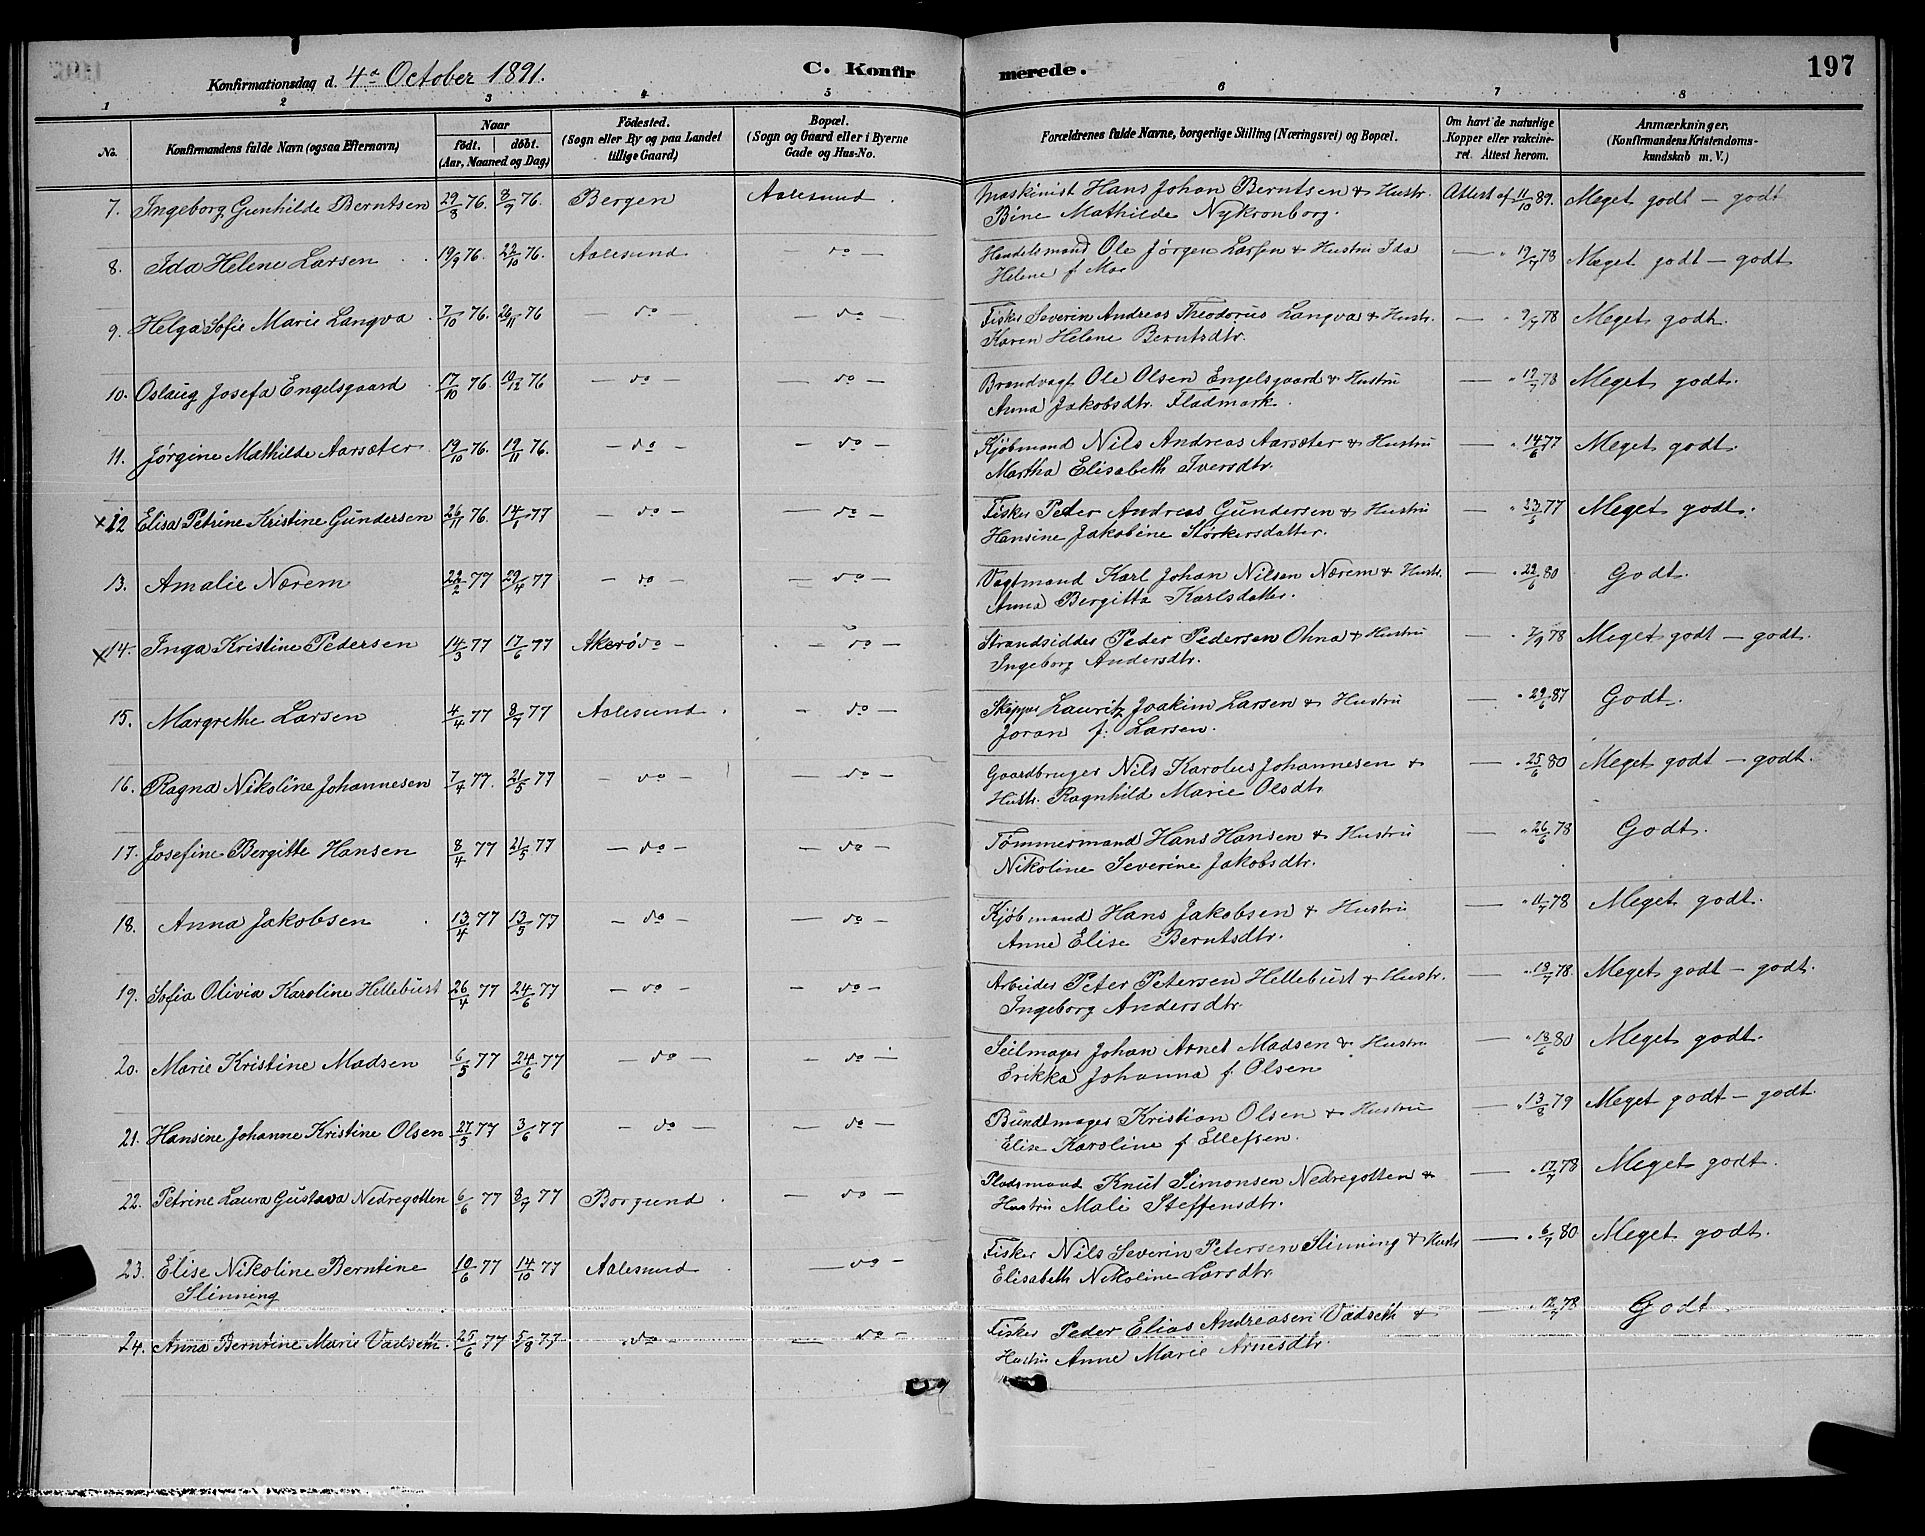 Konfirmationsdag d. 4de October 1891. C. Konfirmerede. 197
1 2 3 4 5 6 7 8
No. Konfirmandens fulde Navn (ogsaa Efternavn) Naar født. døbt. (Aar, Maaned og Dag) Fødested. (Sogn eller By og paa Landet tillige Gaard) Bopæl. (Sogn og Gaard eller i Byerne Gade og Hus-No. Forældrenes fulde Navne, borgerlige Stilling (Næringsvei) og Bopæl. Om havt de naturlige Kopper eller vakcineret. Attest herom. Anmærkninger. (Konfirmandens Kristendomskundskab m. V.)
7. Ingeborg Gunhilde Berntsen 29/8 76. 8/9 76. Bergen Aalesund. Maskinist Hans Johan Berntsen & Hustr. Attest af 11/10 89. Meget godt – godt
Bine Mathilde Nykronborg.
8. Ida Helene Larsen 19/9 76. 22/10 76. Aalesund — do — Handelsmand Ole Jørgen Larsen & Hustru Ida — " 19/7 78 Meget godt – godt
Helene f. Moe
9. Helga Sofie Marie Langva 7/10 76. 26/11 76 — do — do — Fisker Severin Andreas Theodorus Langva & Hustr. — " 9/7 78 Meget godt.
Karen Helene Berntsdtr.
10. Oslaug Josefa Engelsgaard 17/10 76. 10/12 76 — do — — do — Brandvagt Ole Olsen Engelsgaard & Hustru — " 19/7 78 Meget godt.
Anna Jakobsdtr. Fladmark.
11. Jørgine Mathilde Aarsæter 19/10 76. 19/11 76. — do — — do — Kjøbmand Nils Andreas Aarsæter & Hustru — " 14/6 77 Meget godt.
Martha Elisabeth Iversdtr.
x 12 Elisa Petrine Kristine Gundersen 26/11 76. 14/1 77 — do — — do — Fisker Peder Andreas Gundersen & Hustru — " 23/6 77 Meget godt.
Hansine Jakobine Størkersdatter.
13. Amalie Nærem 22/2 77 29/4 77 — do — — do — Vagtmand Karl Johan Nilsen Nærem & Hustr. — " 22/6 80 Godt.
Anna Bergitta Karlsdatter.
x 14. Inga Kristine Pedersen 14/3 77 17/6 77 Akerö do — — do — Strandsidder Peder Pedersen Ohna & Hustru — " 7/9 78 Meget godt – godt.
Ingeborg Andersdtr.
15. Margrethe Larsen 4/4 77 8/7 77 Aalesund. — do — Skipper Lauritz Joakim Larsen & Hustru — " 29/6 87 Godt.
Joran f. Larsen.
16. Ragna Nikoline Johannesen 7/4 77. 21/5 77 — do — — do — Gaardbruger Nils Karolus Johannesen & — " 25/6 80 Meget godt – godt.
Hustr. Ragnhild Marie Olsdtr
17. Josefine Bergitte Hansen 8/4 77 21/5 77 — do — — do — Tømmermand Hans Hansen & Hustru — " 26/6 78 Godt.
Nikoline Severine Jakobsdtr.
18. Anna Jakobsen 13/4 77 13/5 77 — do — — do — Kjøbmand Hans Jakobsen & Hustru — " 11/7 78 Meget godt.
Anne Elise Berntsdtr.
19. Sofia Olivia Karoline Hellebust 26/4 77 24/6 77 — do — — do — Arbeider Peter Petersen Hellebust & Hustr. — " 19/7 78. Meget godt – godt.
Ingeborg Andersdtr.
20. Marie Kristine Madsen 6/5 77 24/6 77 — do — — do — Seilmager Johan Arnet Madsen & Hustru — " 18/6 80 Meget godt.
Erikka Johanna f. Olsen
21. Hansine Johanne Kristine Olsen 27/5 77 3/6 77 — do — — do — Bundtmager Kristian Olsen & Hustru — " 13/8 79 Meget godt – godt.
Elise Karoline f. Ellefsen.
22. Petrine Laura Gustava Nedregotten 6/6 77 8/7 77 Borgund. — do — Pladsmand Knut Simonsen Nedregotten & — " 17/7 78 Meget godt.
Hustru Mali Steffensdtr.
23. Elise Nikoline Berntine 10/6 77 14/10 77 Aalesund — do — Fisker Nils Severin Petersen Slinning & Hustr — " 6/7 80 Meget godt.
Slinning Elisabeth Nikoline Larsdtr.
24. Anna Berntine Marie Vadseth. 25/6 77 5/8 77. do — — do — Fisker Peder Elias Andreasen Vadseth & — " 12/7 78 Godt
Hustru Anne Marie Arnesdtr.